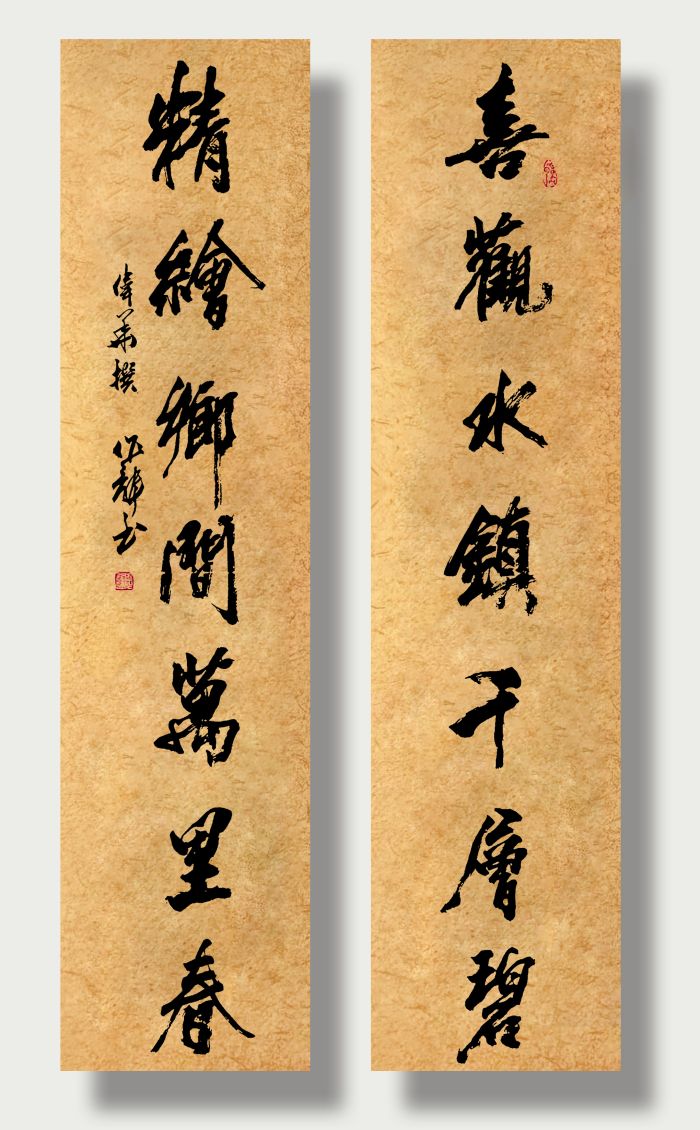 喜觀水鎮千層碧
精繪鄉間萬里春
偉華撰 作輝書